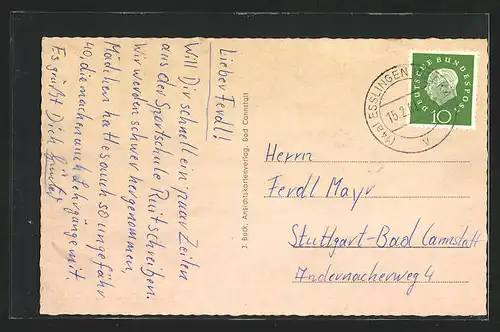 Lieber Ferdl!
Will Dir schnell ein paar Zeilen
aus der Sportschule Ruit schreiben.
Wir werden schwer hergenommen,
Mädchen hat es auch so ungefähr
40, die machen auch Lehrgänge mit.
Es grüßt Dich Günter
J. Beck, Ansichtskartenverlag, Bad Cannstatt
(14a) ESSLINGEN
15.2.
A
DEUTSCHE BUNDESPOST
10
Herrn
Ferdl Mayr
Stuttgart-Bad Cannstatt
Andernacherweg 4